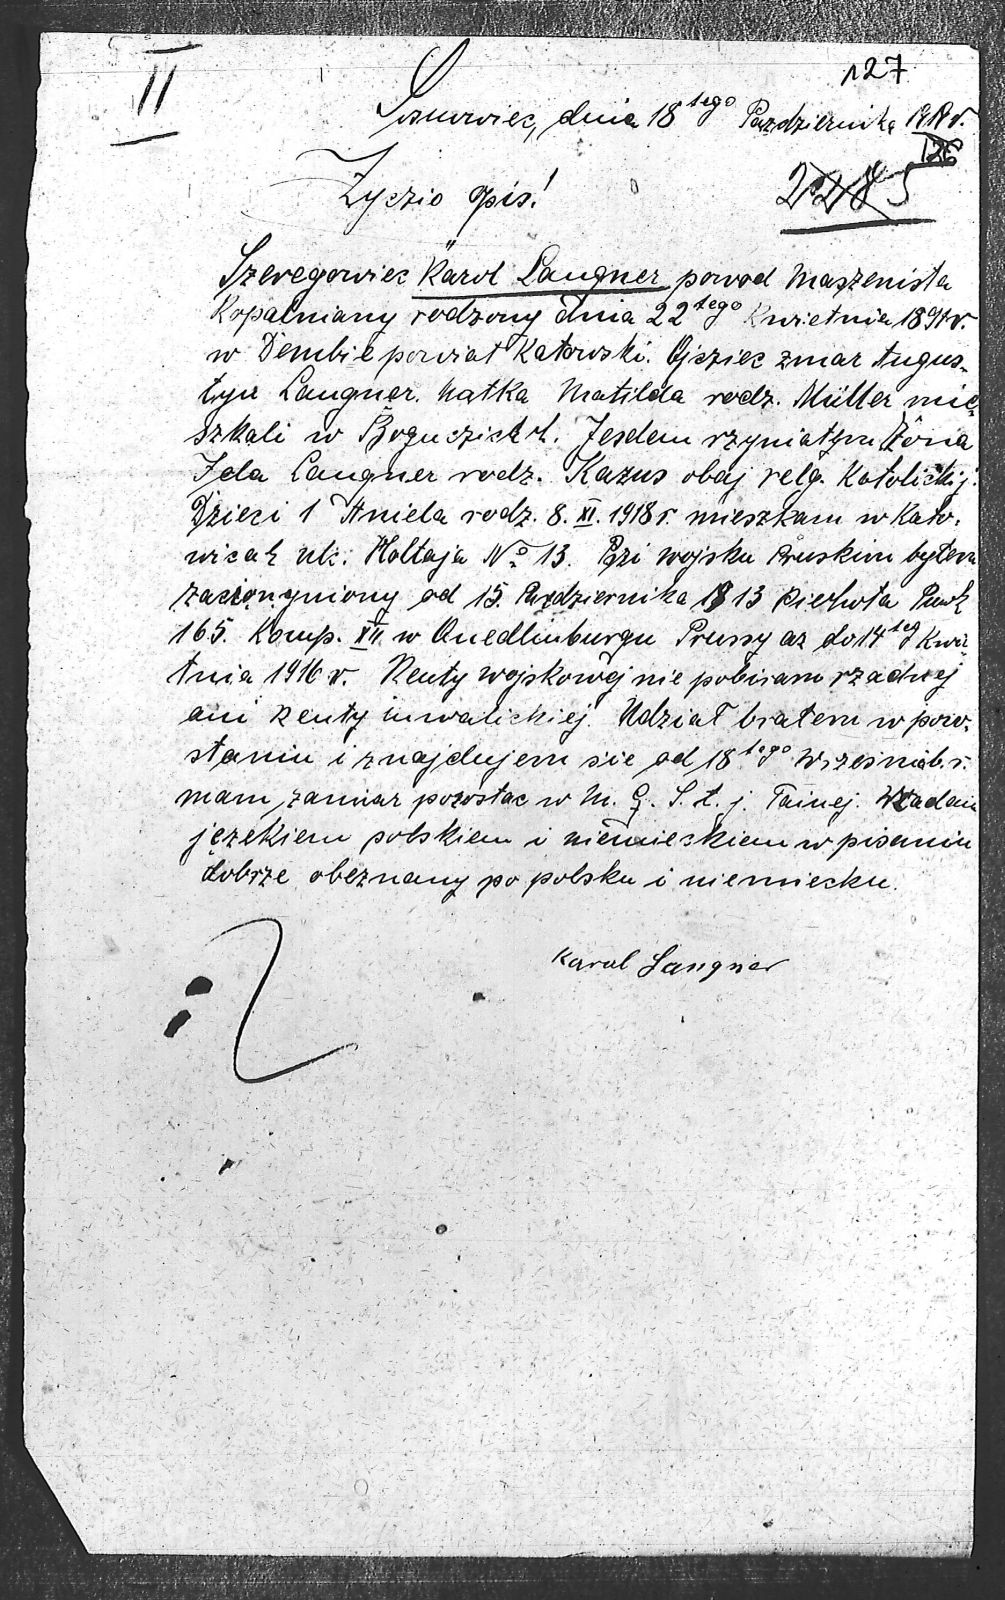 II
127
Sosnowiec, dnia 18tego Pazdziernika
126
2285
Zyczio opis!
Szeregowiec Karol Langner powod Maszenista
Kopalniany rodzony dnia 22tego Kwietnia 1891 r.
w Dembie powiat Katowski. Ojciec zmar Augus-
tyn Langner. Matka Matilda rodz. Müller mie-
szkali w Boguczicach. Jesdem rzyniatym Żona
Jda Langner rodz. Kazus obaj relg. Katolickij.
Dzieci 1 Aniela rodz. 8. XI. 1918 r. mieszkam w Kato-
wicah ulc: Holtaja No 13. Pzi wojsku Pruskim bylem
od 15. Pazdziernika 1913 Piechota
165. Komp. XII w Quedlinburgu Prussy az do 14teg Kwie-
tnia 1916 r. Renty wojskowej nie pobiram rzadnej
ani Renty inwalickiej. Udział bratem w powo-
staniu i znajdujem sie od 18tego Wrzesnia b. r.
mam zamiar pozostac w M. O. S. t. j. Tainej. Wladam
językiem polskiem i niemieckiem w pisaniu
dobrze obeznany po polsku i niemiecku.
Karol Langner